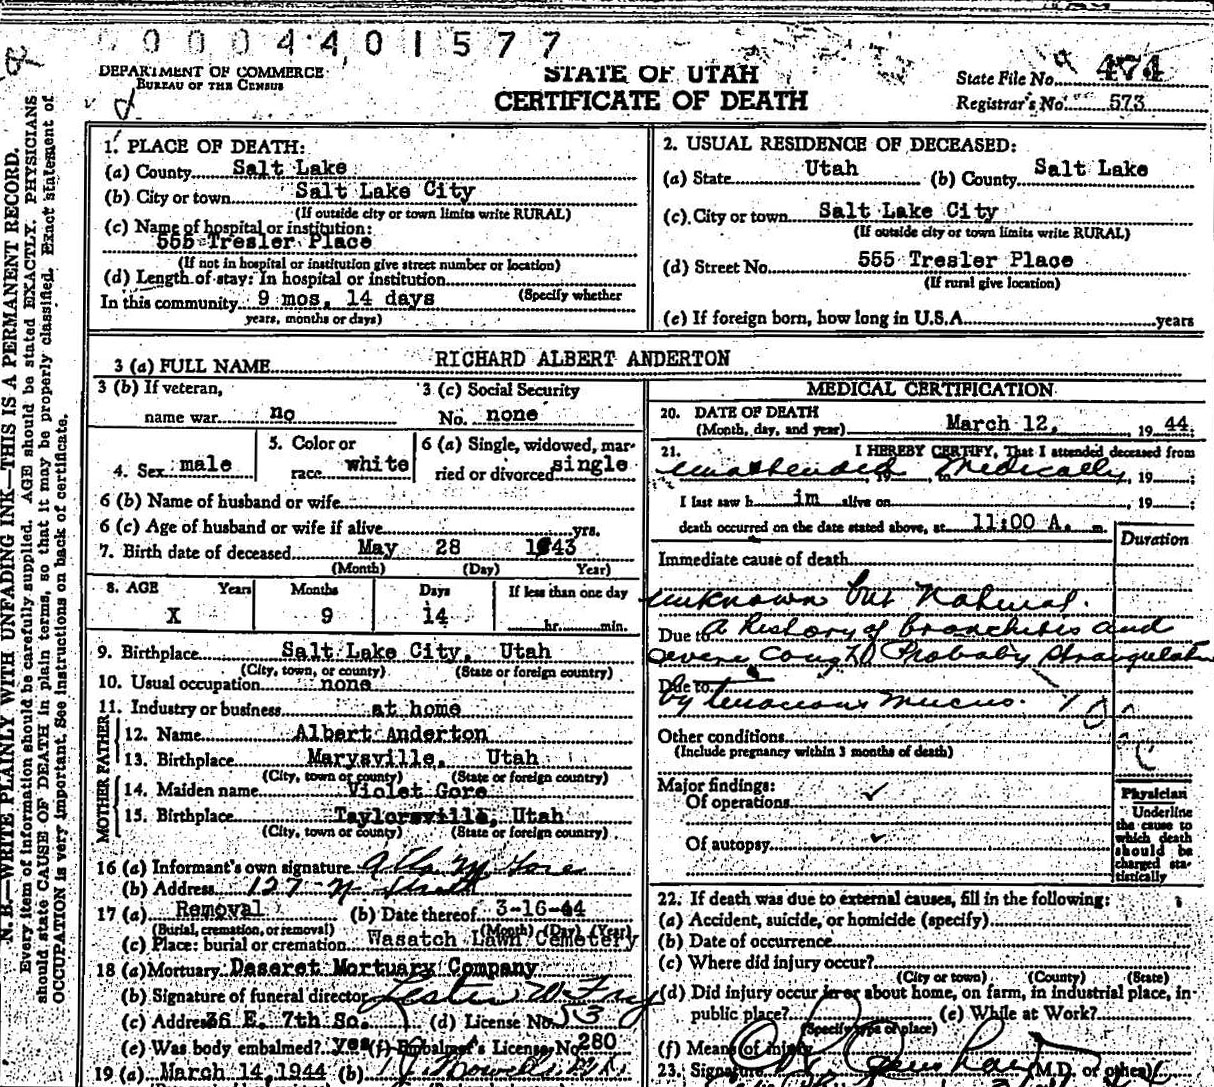 0 0 0 4 4 0 1 5 7 7
DEPARTMENT OF COMMERCE
BUREAU OF THE CENSUS
STATE OF UTAH
CERTIFICATE OF DEATH
State File No. 474
Registrar's No. 573
N. B.—WRITE PLAINLY WITH UNFADING INK—THIS IS A PERMANENT RECORD.
Every item of information should be carefully supplied. AGE should be stated EXACTLY. PHYSICIANS
should state CAUSE OF DEATH in plain terms, so that it may be properly classified. Exact statement of
OCCUPATION is very important. See instructions on back of certificate.
1. PLACE OF DEATH:
(a) County Salt Lake
(b) City or town Salt Lake City
(If outside city or town limits write RURAL)
(c) Name of hospital or institution:
555 Tresler Place
(If not in hospital or institution give street number or location)
(d) Length of stay: In hospital or institution
(Specify whether
In this community 9 mos. 14 days
years, months or days)
2. USUAL RESIDENCE OF DECEASED:
(a) State Utah (b) County Salt Lake
(c) City or town Salt Lake City
(If outside city or town limits write RURAL)
(d) Street No. 555 Tresler Place
(If rural give location)
(e) If foreign born, how long in U.S.A. years
3 (a) FULL NAME RICHARD ALBERT ANDERTON
3 (b) If veteran, 3 (c) Social Security
name war no No. none
4. Sex male 5. Color or race white 6 (a) Single, widowed, married or divorced single
6 (b) Name of husband or wife
6 (c) Age of husband or wife if alive yrs.
7. Birth date of deceased May 28 1943
(Month) (Day) Year)
8. AGE Years Months Days If less than one day
X 9 14 hr. min.
9. Birthplace Salt Lake City, Utah
(City, town, or county) (State or foreign country)
10. Usual occupation none
11. Industry or business at home
FATHER
12. Name Albert Anderton
13. Birthplace Marysville, Utah
(City, town or county) (State or foreign country)
MOTHER
14. Maiden name Violet Gore
15. Birthplace Taylorsville, Utah
(City, town or county) (State or foreign country)
16 (a) Informant's own signature Gore
(b) Address 127
17 (a) Removal (b) Date thereof 3-16-44
(Burial, cremation, or removal) (Month) (Day) (Year)
(c) Place: burial or cremation Wasatch Lawn Cemetery
18 (a) Mortuary Deseret Mortuary Company
(b) Signature of funeral director Lester W Fry
(c) Address 36 E. 7th So. (d) License No. 53
(e) Was body embalmed? yes (f) Embalmer's License No. 280
19 (a) March 14, 1944 (b)
MEDICAL CERTIFICATION
20. DATE OF DEATH
(Month, day, and year) March 12, 1944
21. I HEREBY CERTIFY, That I attended deceased from
unattended, 19 , to Medically, 19 ;
I last saw h im alive on , 19 ;
death occurred on the date stated above, at 11:00 A. m.
Duration
Immediate cause of death
unknown but Natural.
Due to A history of bronchitis and
severe cough Probably strangulation
Due to
by tenacious mucus.
Other conditions
(Include pregnancy within 3 months of death)
Major findings:
Of operations ✓
Of autopsy ✓
Physician
Underline
the cause to
which death
should be
charged sta-
tistically
22. If death was due to external causes, fill in the following:
(a) Accident, suicide, or homicide (specify)
(b) Date of occurrence
(c) Where did injury occur?
(City or town) (County) (State)
(d) Did injury occur in or about home, on farm, in industrial place, in
public place? (e) While at Work?
(Specify type of place)
(f) Means of injury
23. Signature (M.D. or other)